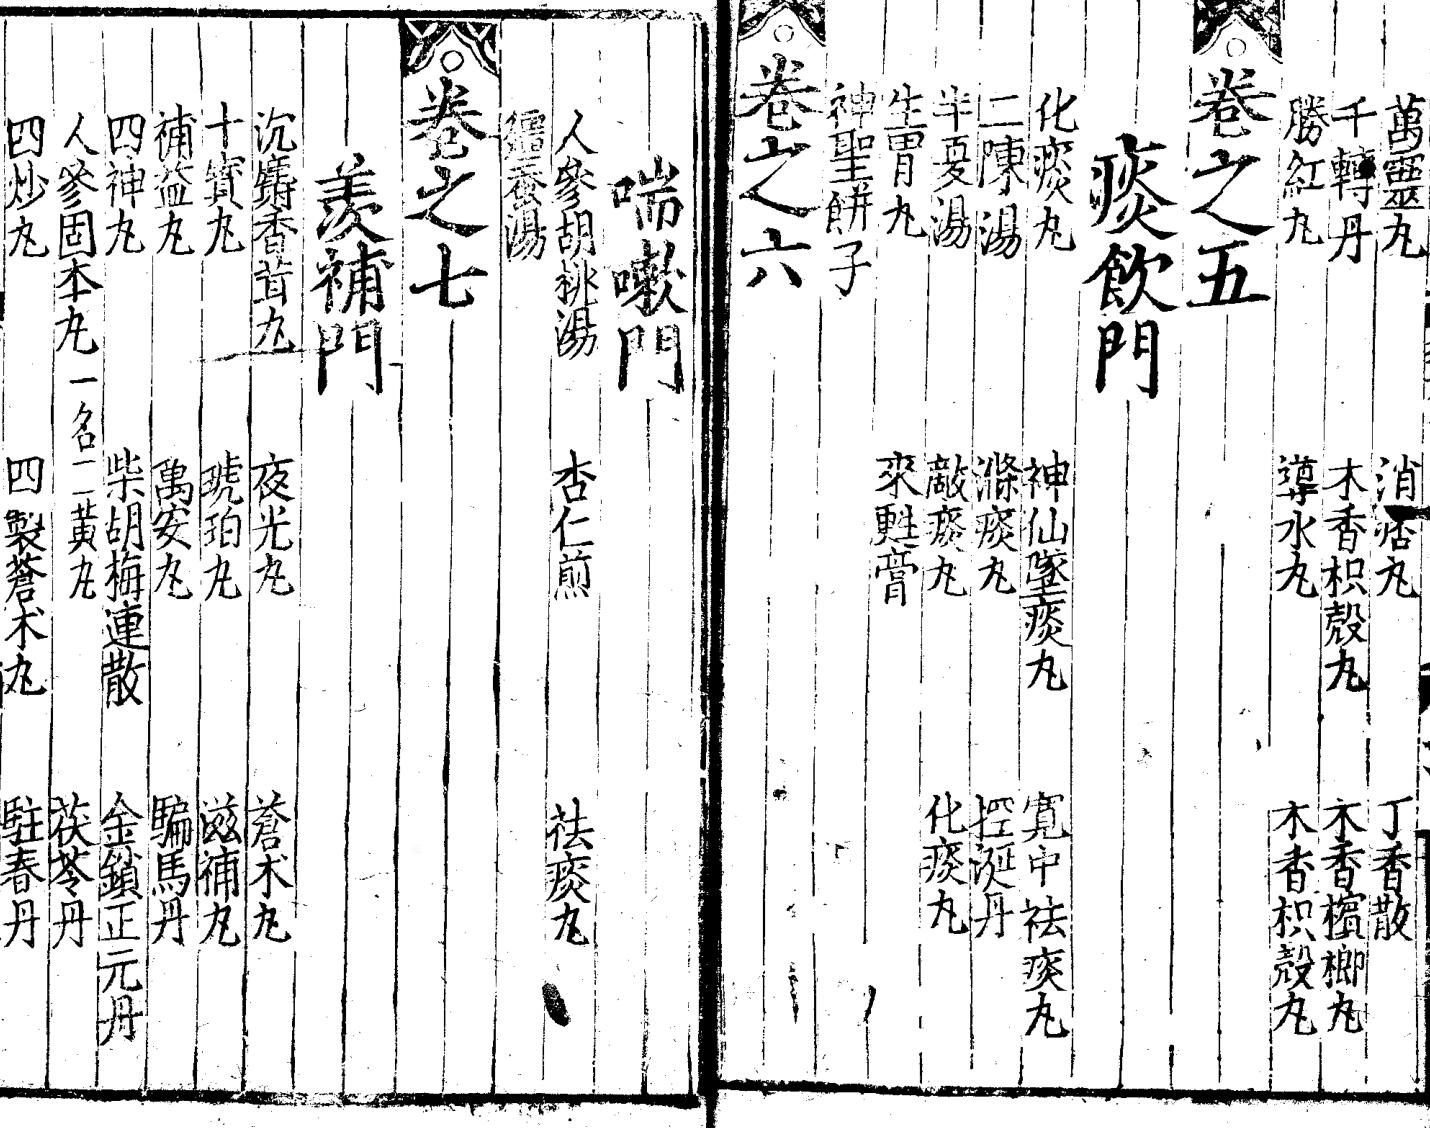 萬靈丸 消痞丸 丁香散
千轉丹 木香枳殼丸 木香檳榔丸
勝紅丸 導水丸 木香枳殼丸
卷之五
痰飲門
化痰丸 神仙墜痰丸 寬中祛痰丸
二陳湯 滌痰丸 控涎丹
半夏湯 敵痰丸 化痰丸
生胃丸 來甦膏
神聖餅子
卷之六
喘嗽門
人參胡桃湯 杏仁煎 祛痰丸
蠶湯
卷之七
羨補門
沉麝香茸丸 夜光丸 蒼术丸
十寶丸 琥珀丸 滋補丸
補益丸 萬安丸 騙馬丹
四神丸 柴胡梅連散 金鎖正元丹
人參固本丸 一名二黃丸 茯苓丹
四炒丸 四製蒼术丸 駐春丹